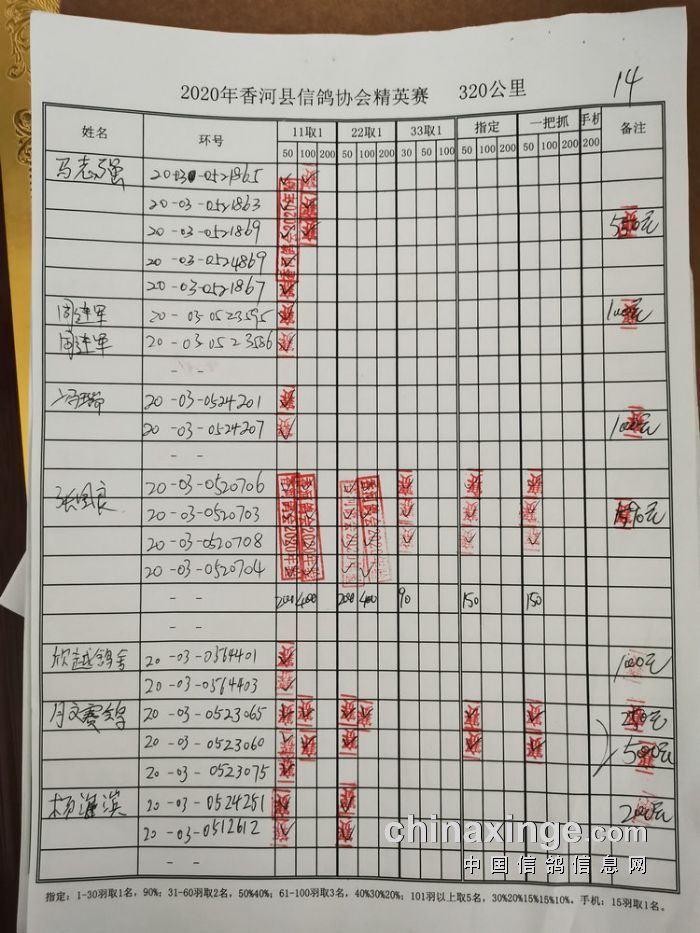 14
2020年香河县信鸽协会精英赛 320公里
姓名 环号 11取1 22取1 33取1 指定 一把抓 手机 备注
50 100 200 50 100 200 30 50 100 50 100 200 50 100 200 200
马志强 20-03-0521865
20-03-0521863
20-03-0521869 550元
20-03-0524869
20-03-0521867
周建军 20-03-0523595 100元
周建军 20-03-0523586
- -
20-03-0524201
20-03-0524207 100元
- -
20-03-0520706
20-03-0520703
20-03-0520708
20-03-0520704
- - 200 400 200 400 90 150 150
- -
欣越鸽舍 20-03-0564401 100元
20-03-0564403
月文赛鸽 20-03-0523065
20-03-0523060 500元
20-03-0523075
杨海滨 20-03-0524251 200元
20-03-0512612
- -
chinaxinge.com
中国信鸽信息网
指定：1-30羽取1名，90%；31-60羽取2名，50%40%；61-100羽取3名，40%30%20%；101羽以上取5名，30%20%15%15%10%。手机：15羽取1名。